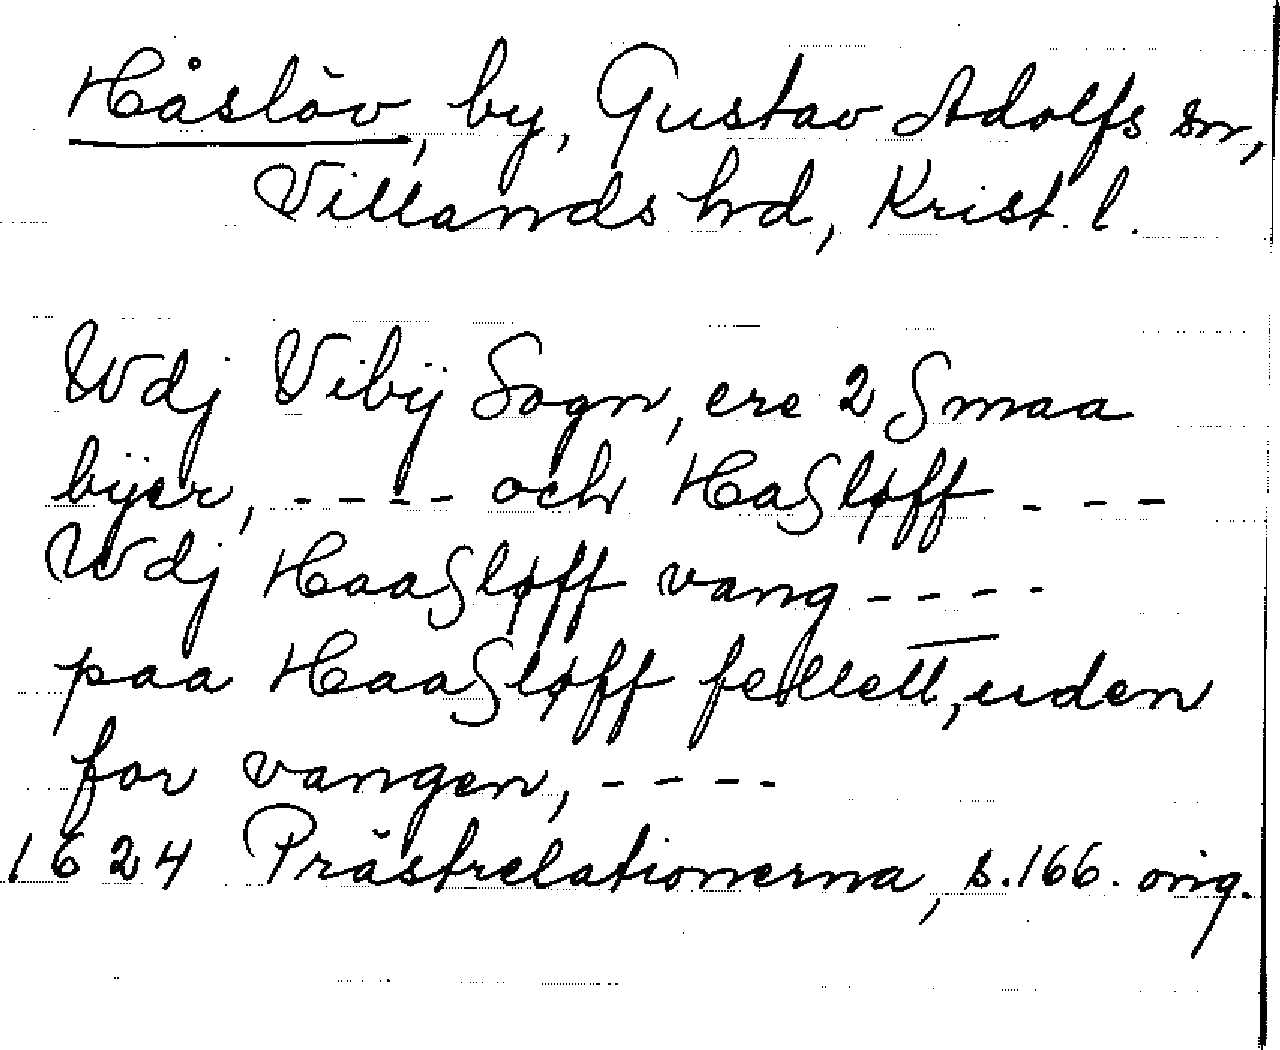 Håslöv, by, Gustav Adolfs sn,
Villands hd, Krist. l.
Wdj Vibÿ Sogn, ere 2 Smaa
bÿer, - - - - och HaSløff - - -
Wdj HaaSløff vang - - - -
paa HaaSløff fellett, uden
for vangen, - - - -
1624 Prästrelationerna, s. 166. orig.